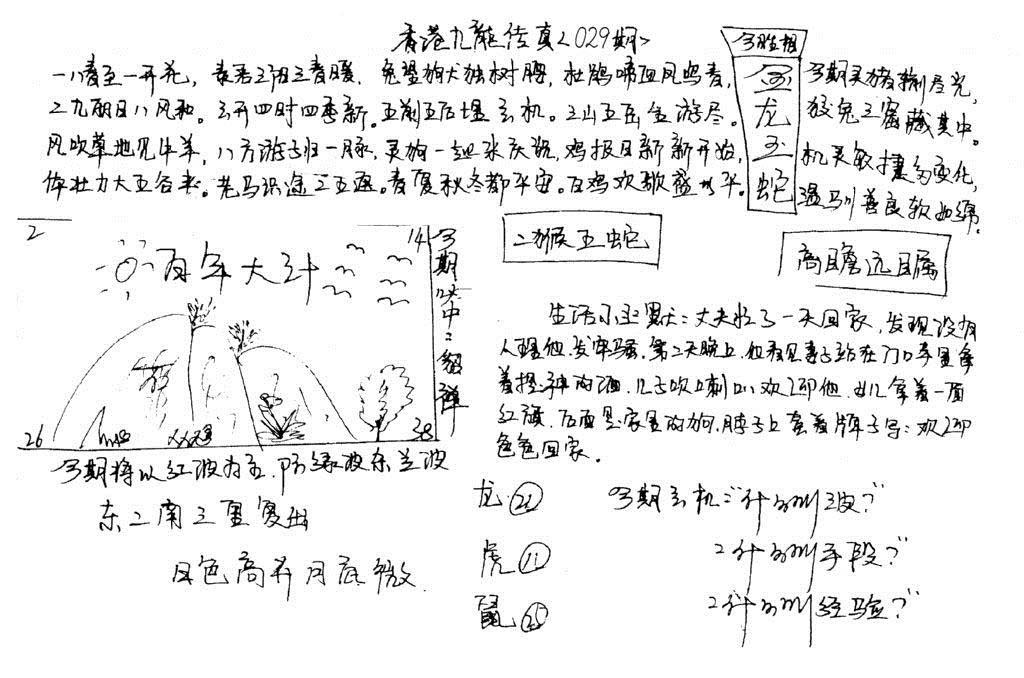 香港九龍传真<029期>
一八春至一开花,春君三阳三春暖,兔望狗犬独树腾,杜鹃啼血风鸣春,
二九朝日八风和。三开四时四季新。五前五后堪玄机。三山五岳全游尽。
风吹草地见牛羊,八方游子归一脉,灵狗一起来庆祝,鸡报日新新开始,
体壮力大五谷来。老马识途三五遇。春夏秋冬都平安。百鸡欢歌盛太平。
今期灵猪输尽光,
狡兔三窟藏其中。
机灵敏捷多变化,
温驯善良软如绵。
龙
蛇
二猴五蛇
高瞻远瞩
2
14
百年大计
26
38
今期将以红波为主,防绿波东兰波
东二南三里复出
日色高升月底微
生活小幽默:丈夫忙了一天回家,发现没有
人理他,发牢骚,第二天晚上,他看见妻子站在门口手里拿
着提神的酒,儿子吹喇叭欢迎他,女儿拿着一面
红旗,后面是家里的狗,脖子上套着牌子写:欢迎
色色回家。
龙(21)
虎(11)
鼠(25)
今期玄机:"什么叫三波?"
2什么叫手段?"
2什么叫经验?"